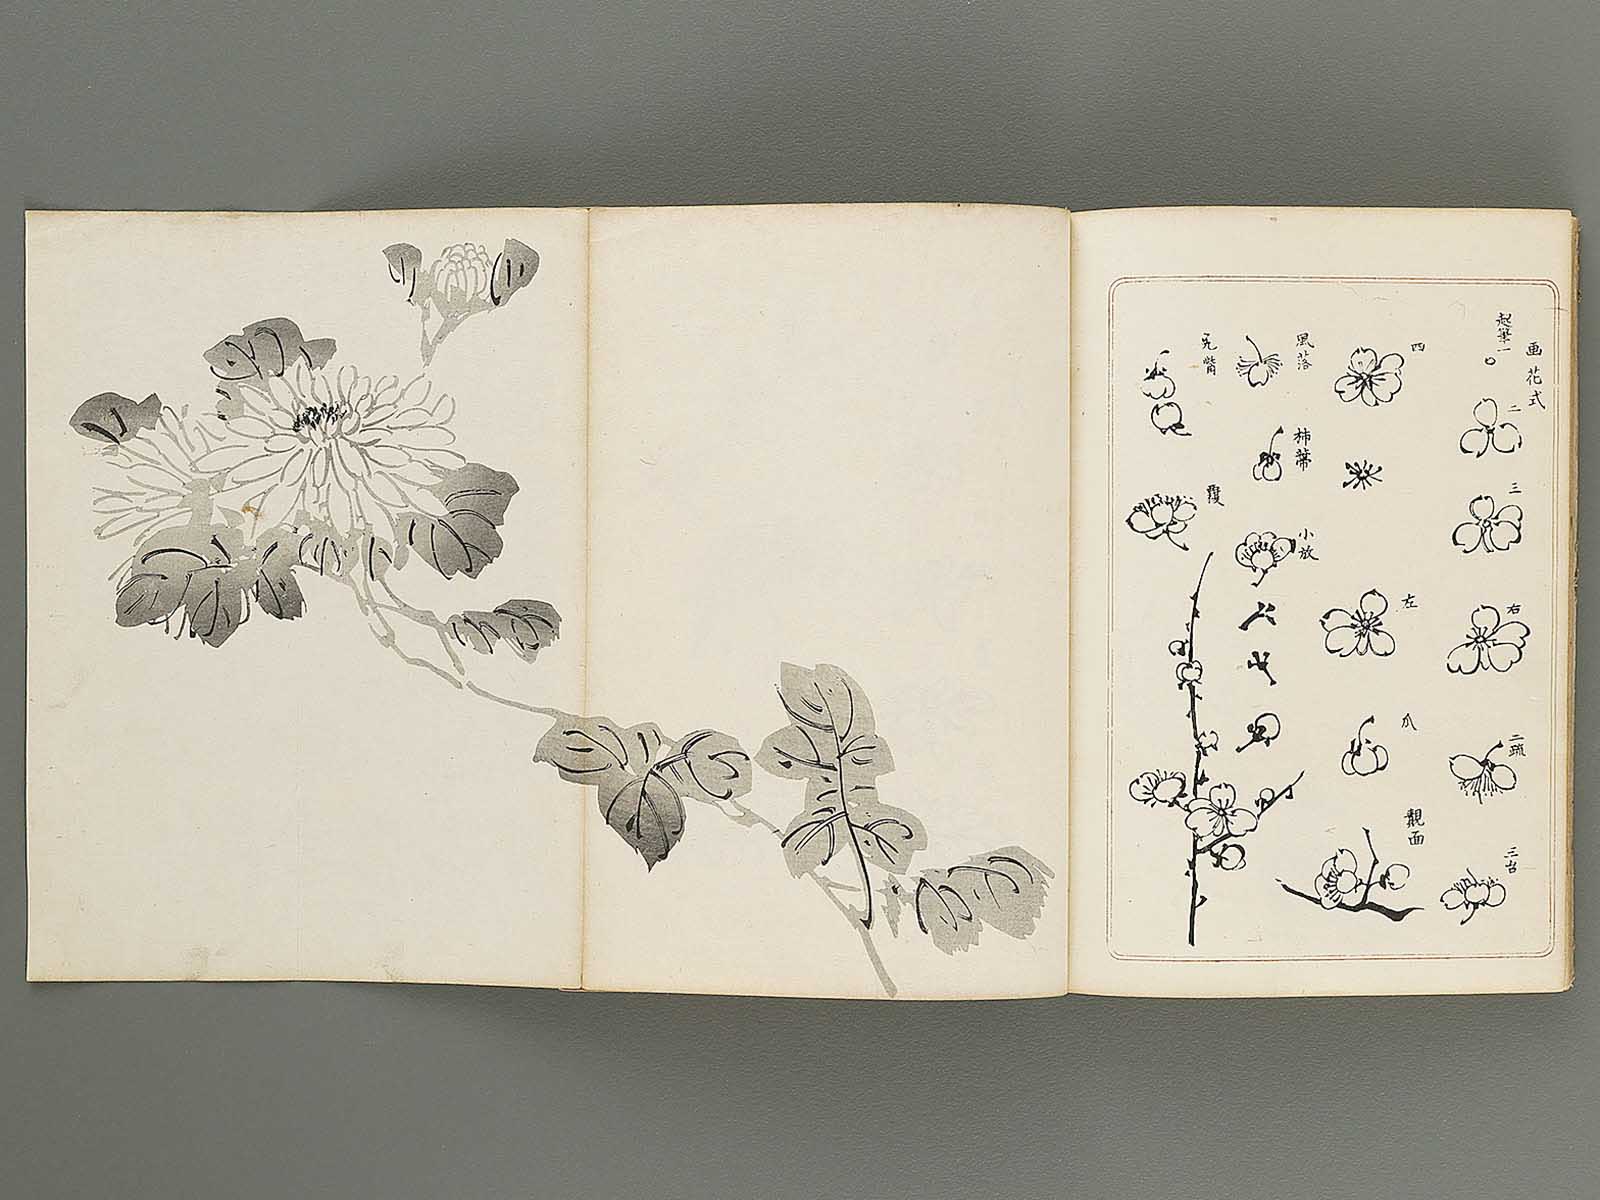 画花式
起筆一
二
三
右
二疏
三台
四
左
爪
覿面
風落
柿蒂
小放
兎嘴
覆